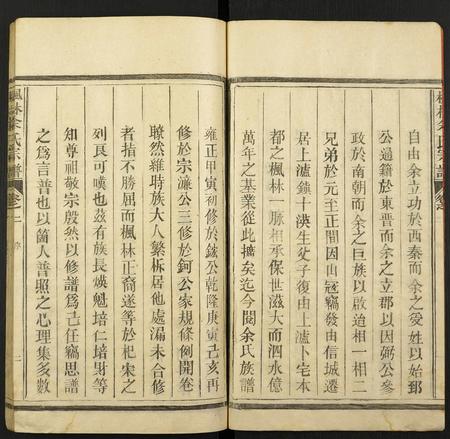 自由余立功於西秦而余之爰姓以始郅
公過籍於東晋而余之立郡以因弼公參
政於南朝而余之巨族以啟迨相一相二
兄弟於元至正間因山冦竊發由信城遷
居上瀘鎮十洟生㕛子復由上瀘卜宅本
都之楓林一脈相承保世滋大而泗水億
萬年之基業從此擴矣迄今閱余氏族譜
楓林余氏宗譜 卷之二 序 二
雍正甲寅初修於鉉公乾隆庚寅己亥再
修於宗濂公三修於鈳公家規條例開卷
瞭然雖時族大人繁柝居他處漏未合修
者指不勝屈而楓林正裔遂等於杞宋之
列良可嘆也玆有族長煐魁培仁培財等
知尊祖敬宗殷然以修譜爲己任竊思譜
之爲言普也以箇人善照之心理集多數